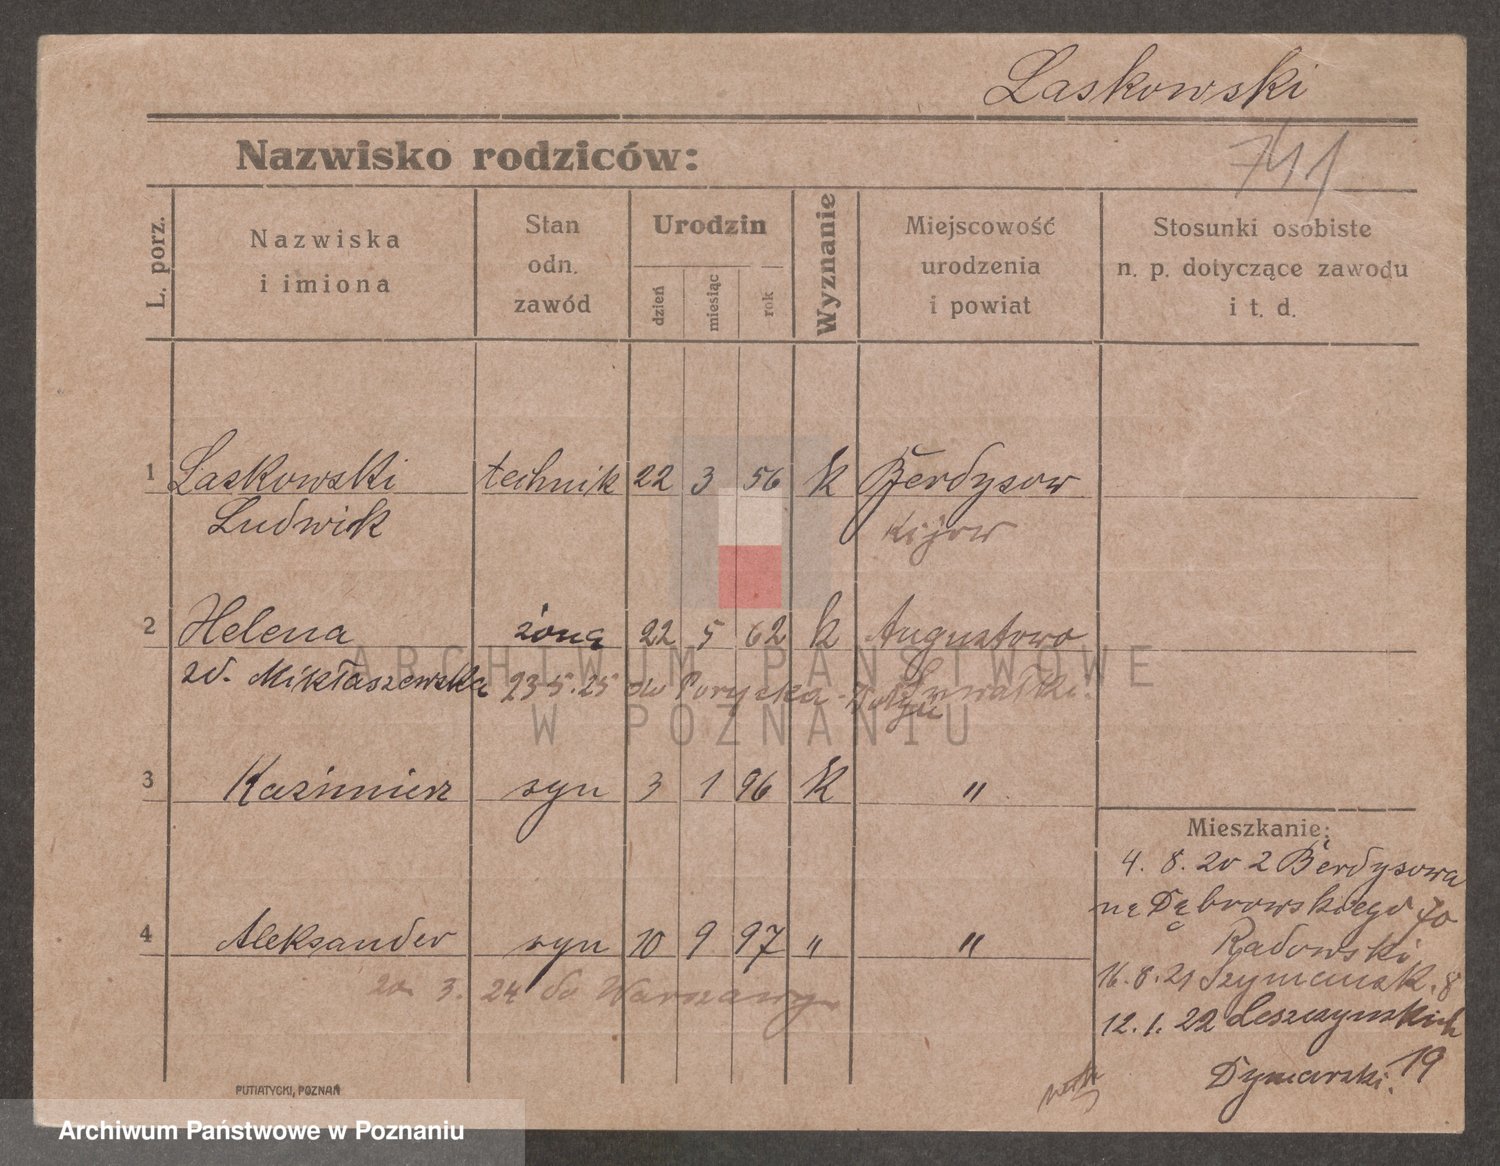 Laskowski
741
Nazwisko rodziców:
L. porz.
Nazwiska
i imiona
Stan
odn.
zawód
Urodzin
dzień
miesiąc
rok
Wyznanie
Miejscowość
urodzenia
i powiat
Stosunki osobiste
n. p. dotyczące zawodu
i t. d.
1 Laskowski technik 22 3 56 k Berdysow
Ludwik Kijow
2 Helena żona 22 5 62 k Augustowo
zd. Mikłaszewska 23.5.25 do Porycka - Suwałki.
ARCHIWUM PAŃSTWOWE
W POZNANIU
3 Kazimierz syn 3 1 96 k "
4 Aleksander syn 10 9 97 " "
20. 3. 24 do Warszawy
Mieszkanie:
4. 8. 20 z Berdysowa
na Dąbrowskiego 70
Radowski
16.8.21 Szymańsk. 8
12.1.22 Leszczyńskich
Dymarski. 19
PUTIATYCKI, POZNAŃ
Archiwum Państwowe w Poznaniu